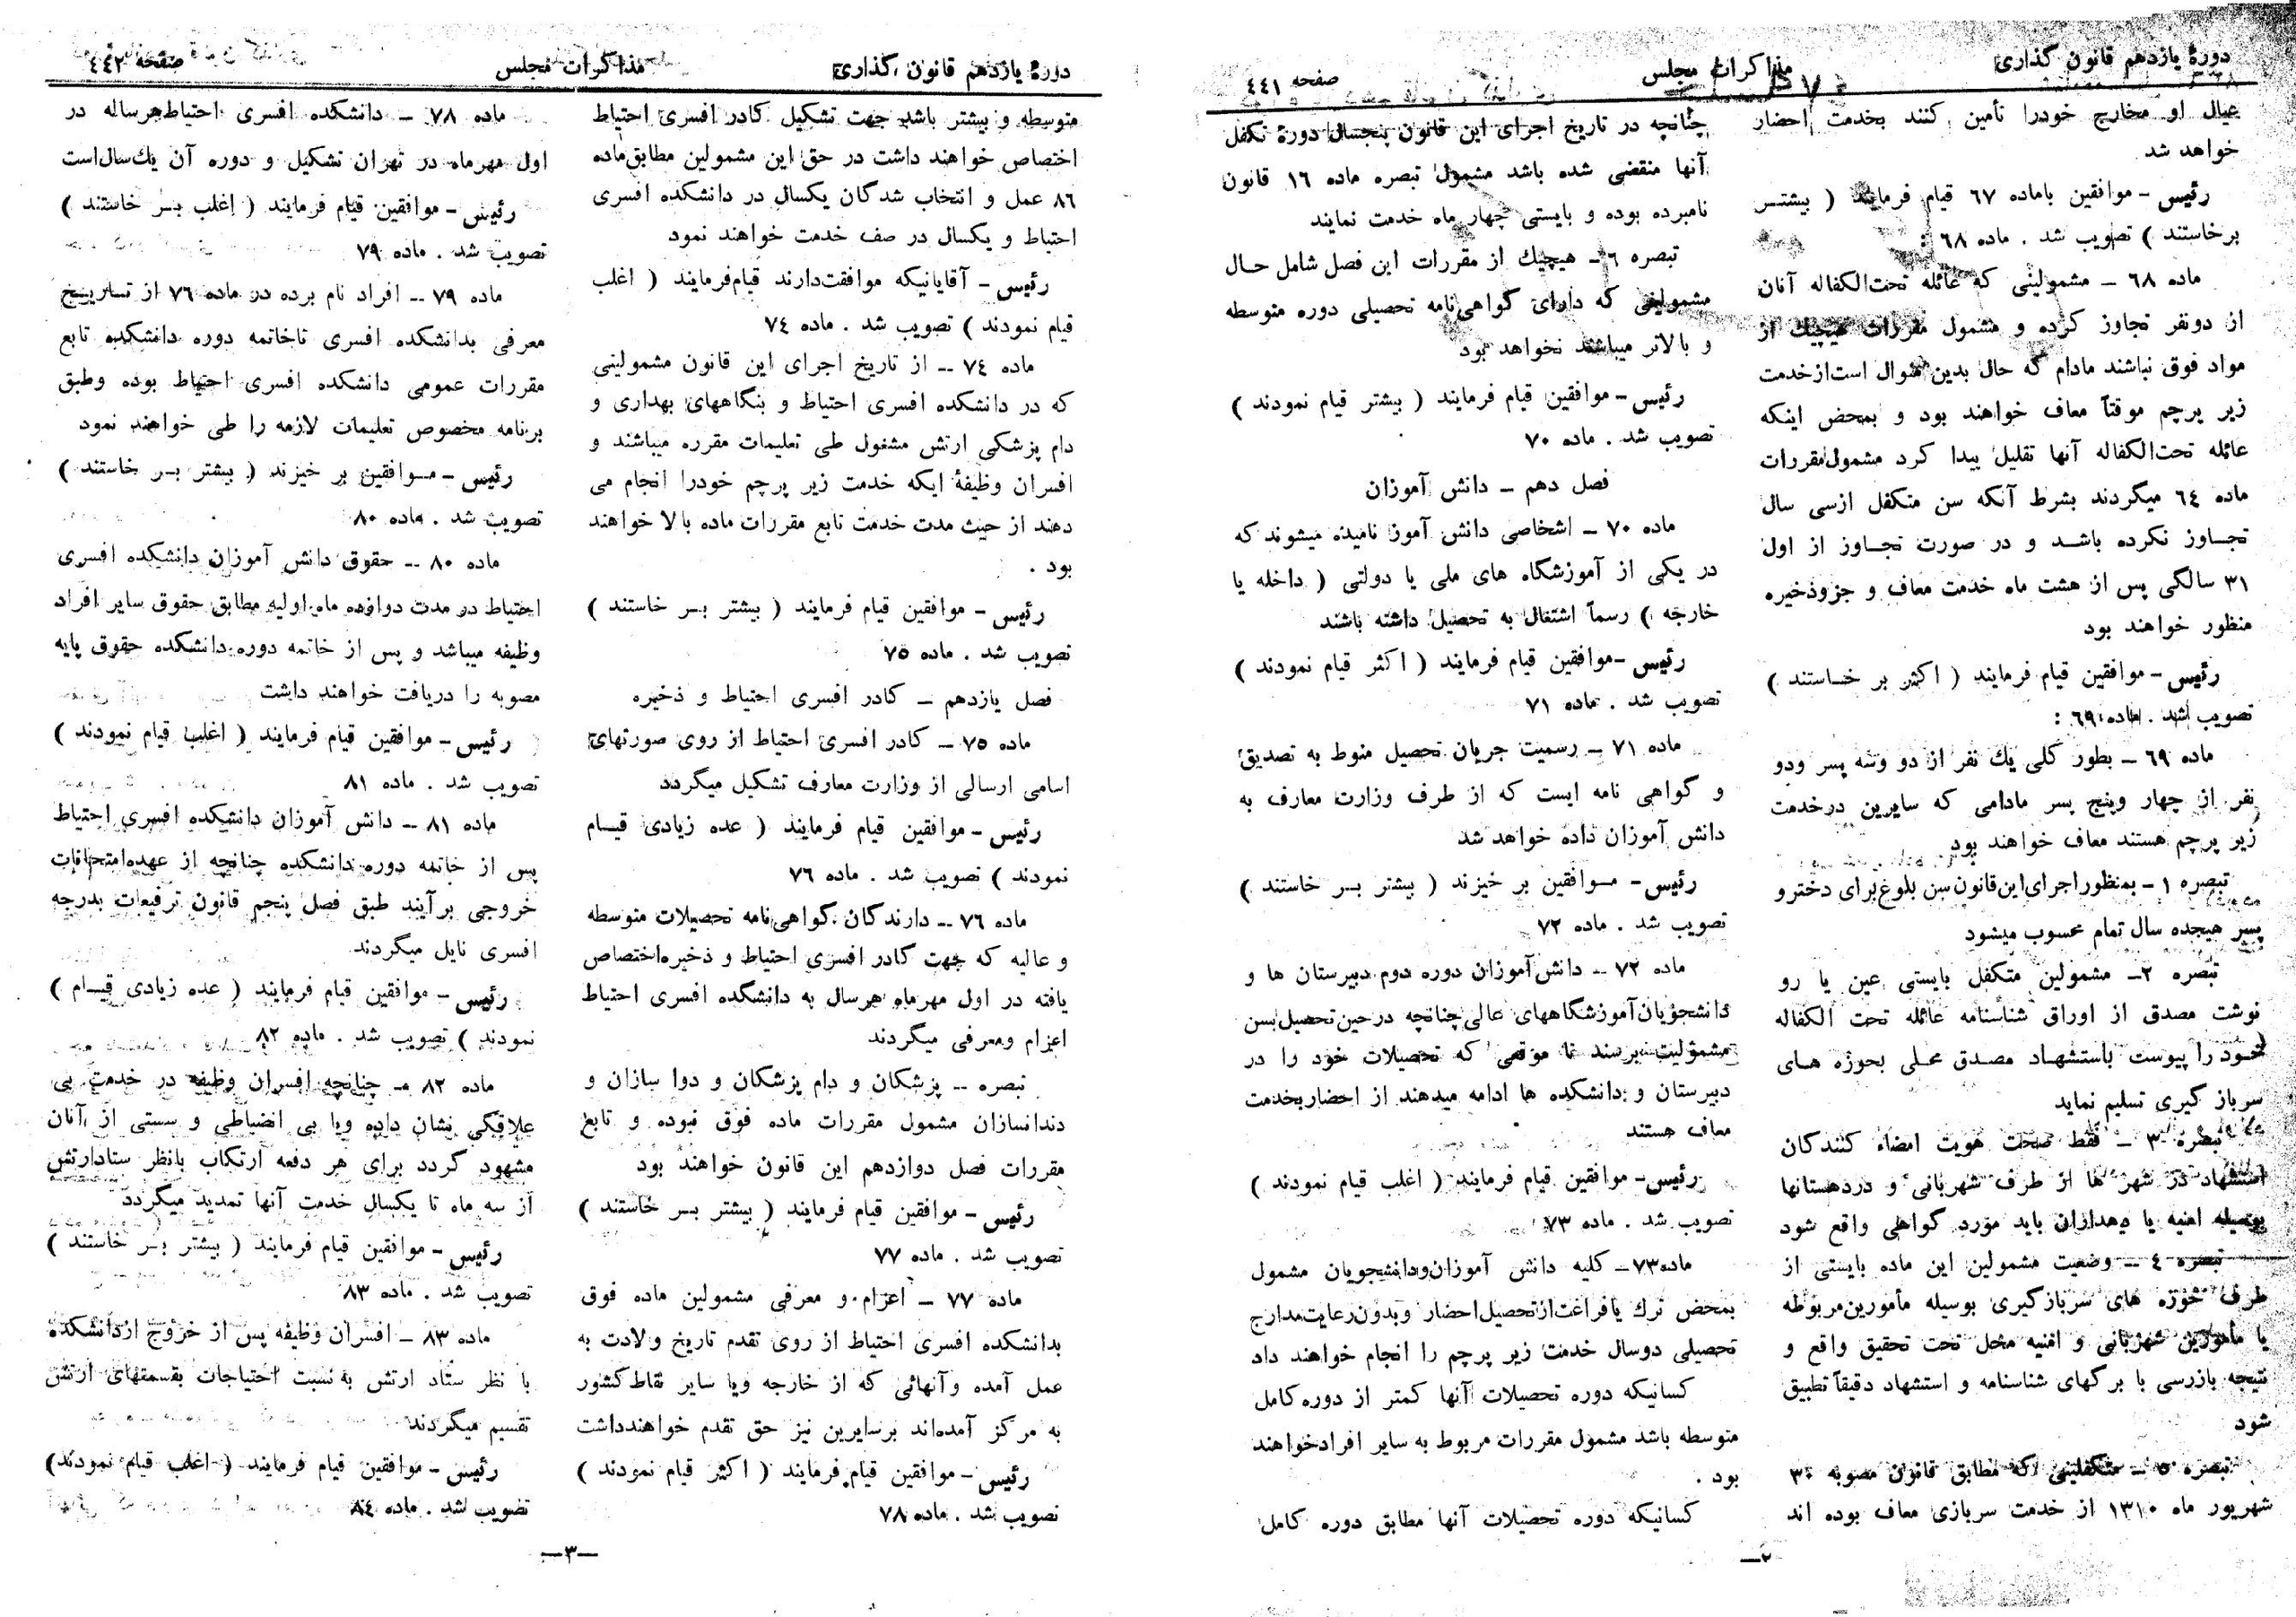 دورهٔ یازدهم قانون گذاری
مذاکرات مجلس
صفحه ٤٤١
عیال او مخارج خودرا تأمین کنند بخدمت احضار
خواهد شد
رئیس - موافقین باماده ٦٧ قیام فرمایند ( بیشتـر
برخاستند ) تصویب شد . ماده ٦٨ :
ماده ٦٨ - مشمولینی که عائله تحت‌الکفاله آنان
از دونفر تجاوز کرده و مشمول مقررات هیچیك از
مواد فوق نباشند مادام که حال بدین منوال است‌ازخدمت
زیر پرچم موقتاً معاف خواهند بود و بمحض اینکه
عائله تحت‌الکفاله آنها تقلیل پیدا کرد مشمول‌مقررات
ماده ٦٤ میگردند بشرط آنکه سن متکفل ازسی سال
تجـاوز نکرده باشـد و در صورت تجـاوز از اول
٣١ سالگی پس از هشت ماه خدمت معاف و جزوذخیره
منظور خواهند بود
رئیس - موافقین قیام فرمایند ( اکثر بر خـاستند )
تصویب شد . ماده ٦٩ :
ماده ٦٩ - بطور کلی یك نفر از دو وسه پسر ودو
نفر از چهار وپنج پسر مادامی که سایرین درخدمت
زیر پرچم هستند معاف خواهند بود
تبصره ١ - بمنظور اجرای این‌قانون سن بلوغ برای دخترو
پسر هیجده سال تمام محسوب میشود
تبصره ٢- مشمولین متکفل بایستی عین یا رو
نوشت مصدق از اوراق شناسنامه عائله تحت الکفاله
خـود را پیوست باستشهـاد مصـدق محـلی بحوزه هـای
سرباز گیری تسلیم نماید
تبصره ٣ - فقط صحت هویت امضاء کنندکان
استشهاد در شهر ها از طرف شهربانی و دردهستانها
بوسیله امنیه یا دهداران باید مورد گواهی واقع شود
تبصره ٤ - وضعیت مشمولین این ماده بایستی از
طرف حوزه های سربازگیری بوسیله مأمورین‌مربوطه
یا مأمورین شهربانی و امنیه محل تحت تحقیق واقع و
نتیجه بازرسی با برگهای شناسنامه و استشهاد دقیقاً تطبیق
شود
تبصره ٥ - متکفلینی که مطابق قانون مصوبه ٣٠
شهریور ماه ١٣١٠ از خدمت سربازی معاف بوده اند
چنانچه در تاریخ اجرای این قانون پنجسال دورهٔ تکفل
آنها منقضی شده باشد مشمول تبصره ماده ١٦ قانون
نامبرده بوده و بایستی چهار ماه خدمت نمایند
تبصره ٦- هیچیك از مقررات این فصل شامل حـال
مشمولینی که دارای گواهی‌نامه تحصیلی دوره متوسطه
و بالاتر میباشند نخواهد بود
رئیس - موافقین قیام فرمایند ( بیشتر قیام نمودند )
تصویب شد . ماده ٧٠
فصل دهم - دانش آموزان
ماده ٧٠ - اشخاصی دانش آموز نامیده میشوند که
در یکی از آموزشگاه های ملی یا دولتی ( داخله یا
خارجه ) رسماً اشتغال به تحصیل داشته باشند
رئیس -موافقین قیام فرمایند ( اکثر قیام نمودند )
تصویب شد . ماده ٧١
ماده ٧١ - رسمیت جریان تحصیل منوط به تصدیق
و گواهی نامه ایست که از طرف وزارت معارف به
دانش آموزان داده خواهد شد
رئیس- مـوافقین بر خیزند ( بیشتر بـر خاستند )
تصویب شد . ماده ٧٢
ماده ٧٢ - دانش‌آموزان دوره دوم دبیرستان ها و
دانشجویان‌آموزشگاههای عالی‌چنانچه درحین‌تحصیل‌بسن
مشمولیت برسند تا موقعی که تحصیلات خود را در
دبیرستان و دانشکده ها ادامه میدهند از احضاربخدمت
معاف هستند
رئیس- موافقین قیام فرمایند ( اغلب قیام نمودند )
تصویب شد . ماده ٧٣
ماده٧٣- کلیه دانش آموزان‌ودانشجویان مشمول
بمحض ترك یافراغت‌ازتحصیل‌احضار وبدون‌رعایت‌مدارج
تحصیلی دوسال خدمت زیر پرچم را انجام خواهند داد
کسانیکه دوره تحصیلات آنها کمتر از دوره کامل
متوسطه باشد مشمول مقررات مربوط به سایر افرادخواهند
بود .
کسانیکه دوره تحصیلات آنها مطابق دوره کامل
-٢
دورهٔ یازدهم قانون گذاری
مذاکرات مجلس
صفحه ٤٤٢
متوسطه و بیشتر باشد جهت تشکیل کادر افسری احتیاط
اختصاص خواهند داشت در حق این مشمولین مطابق‌ماده
٨٦ عمل و انتخاب شدگان یکسال در دانشکده افسری
احتیاط و یکسال در صف خدمت خواهند نمود
رئیس - آقایانیکه موافقت‌دارند قیام‌فرمایند ( اغلب
قیام نمودند ) تصویب شد . ماده ٧٤
ماده ٧٤ - از تاریخ اجرای این قانون مشمولینی
که در دانشکده افسری احتیاط و بنگاههای بهداری و
دام پزشکی ارتش مشغول طی تعلیمات مقرره میباشند و
افسران وظیفهٔ ایکه خدمت زیر پرچم خودرا انجام می
دهند از حیث مدت خدمت تابع مقررات ماده بالا خواهند
بود .
رئیس - موافقین قیام فرمایند ( بیشتر بـر خاستند )
تصویب شد . ماده ٧٥
فصل یازدهم - کادر افسری احتیاط و ذخیره
ماده ٧٥ - کادر افسری احتیاط از روی صورتهای
اسامی ارسالی از وزارت معارف تشکیل میگردد
رئیس - موافقین قیام فرمایند ( عده زیادی قیـام
نمودند ) تصویب شد . ماده ٧٦
ماده ٧٦ - دارندگان گواهی‌نامه تحصیلات متوسطه
و عالیه که جهت کادر افسری احتیاط و ذخیره‌اختصاص
یافته در اول مهرماه هرسال به دانشگده افسری احتیاط
اعزام ومعرفی میگردند
تبصره - پزشکان و دام پزشکان و دوا سازان و
دندانسازان مشمول مقررات ماده فوق نبوده و تابع
مقررات فصل دوازدهم این قانون خواهند بود
رئیس - موافقین قیام فرمایند ( بیشتر بـر خاستند )
تصویب شد . ماده ٧٧
ماده ٧٧ - اعزام و معرفی مشمولین ماده فوق
بدانشکده افسری احتیاط از روی تقدم تاریخ ولادت به
عمل آمده وآنهائی که از خارجه ویا سایر نقاط‌کشور
به مرکز آمده‌اند برسایرین نیز حق تقدم خواهندداشت
رئیس - موافقین قیام فرمایند ( اکثر قیام نمودند )
تصویب شد . ماده ٧٨
ماده ٧٨ - دانشکده افسری احتیاط‌هرساله در
اول مهرماه در تهران تشکیل و دوره آن یك‌سال‌است
رئیس - موافقین قیام فرمایند ( اغلب بـر خاستند )
تصویب شد . ماده ٧٩
ماده ٧٩ - افراد نام برده در ماده ٧٦ از تـاریـخ
معرفی بدانشکده افسری تاخاتمه دوره دانشکده تابع
مقررات عمومی دانشکده افسری احتیاط بوده وطبق
برنامه مخصوص تعلیمات لازمه را طی خواهند نمود
رئیس - مـوافقین بر خیزند ( بیشتر بـر خاستند )
تصویب شد . ماده ٨٠
ماده ٨٠ - حقوق دانش آموزان دانشکده افسری
احتیاط در مدت دوازده ماه اولیه مطابق حقوق سایر افراد
وظیفه میباشد و پس از خاتمه دوره دانشکده حقوق پایه
مصوبه را دریافت خواهند داشت
رئیس - موافقین قیام فرمایند ( اغلب قیام نمودند )
تصویب شد . ماده ٨١
ماده ٨١ - دانش آموزان دانشکده افسری احتیاط
پس از خاتمه دوره دانشکده چنانچه از عهده‌امتحانات
خروجی برآیند طبق فصل پنجم قانون ترفیعات بدرجه
افسری نایل میگردند
رئیس - موافقین قیام فرمایند ( عده زیادی قیـام
نمودند ) تصویب شد . ماده ٨٢
ماده ٨٢ - چنانچه افسران وظیفه در خدمت بی
علاقگی نشان داده ویا بی انضباطی و سستی از آنان
مشهود گردد برای هر دفعه ارتکاب بانظر ستادارتش
از سه ماه تا یکسال خدمت آنها تمدید میگردد
رئیس - موافقین قیام فرمایند ( بیشتر بـر خاستند )
تصویب شد . ماده ٨٣
ماده ٨٣ - افسران وظیفه پس از خروج ازدانشکده
با نظر ستاد ارتش به نسبت احتیاجات بقسمتهای ارتش
تقسیم میگردند
رئیس - موافقین قیام فرمایند ( اغلب قیام نمودند)
تصویب شد . ماده ٨٤
-٣-